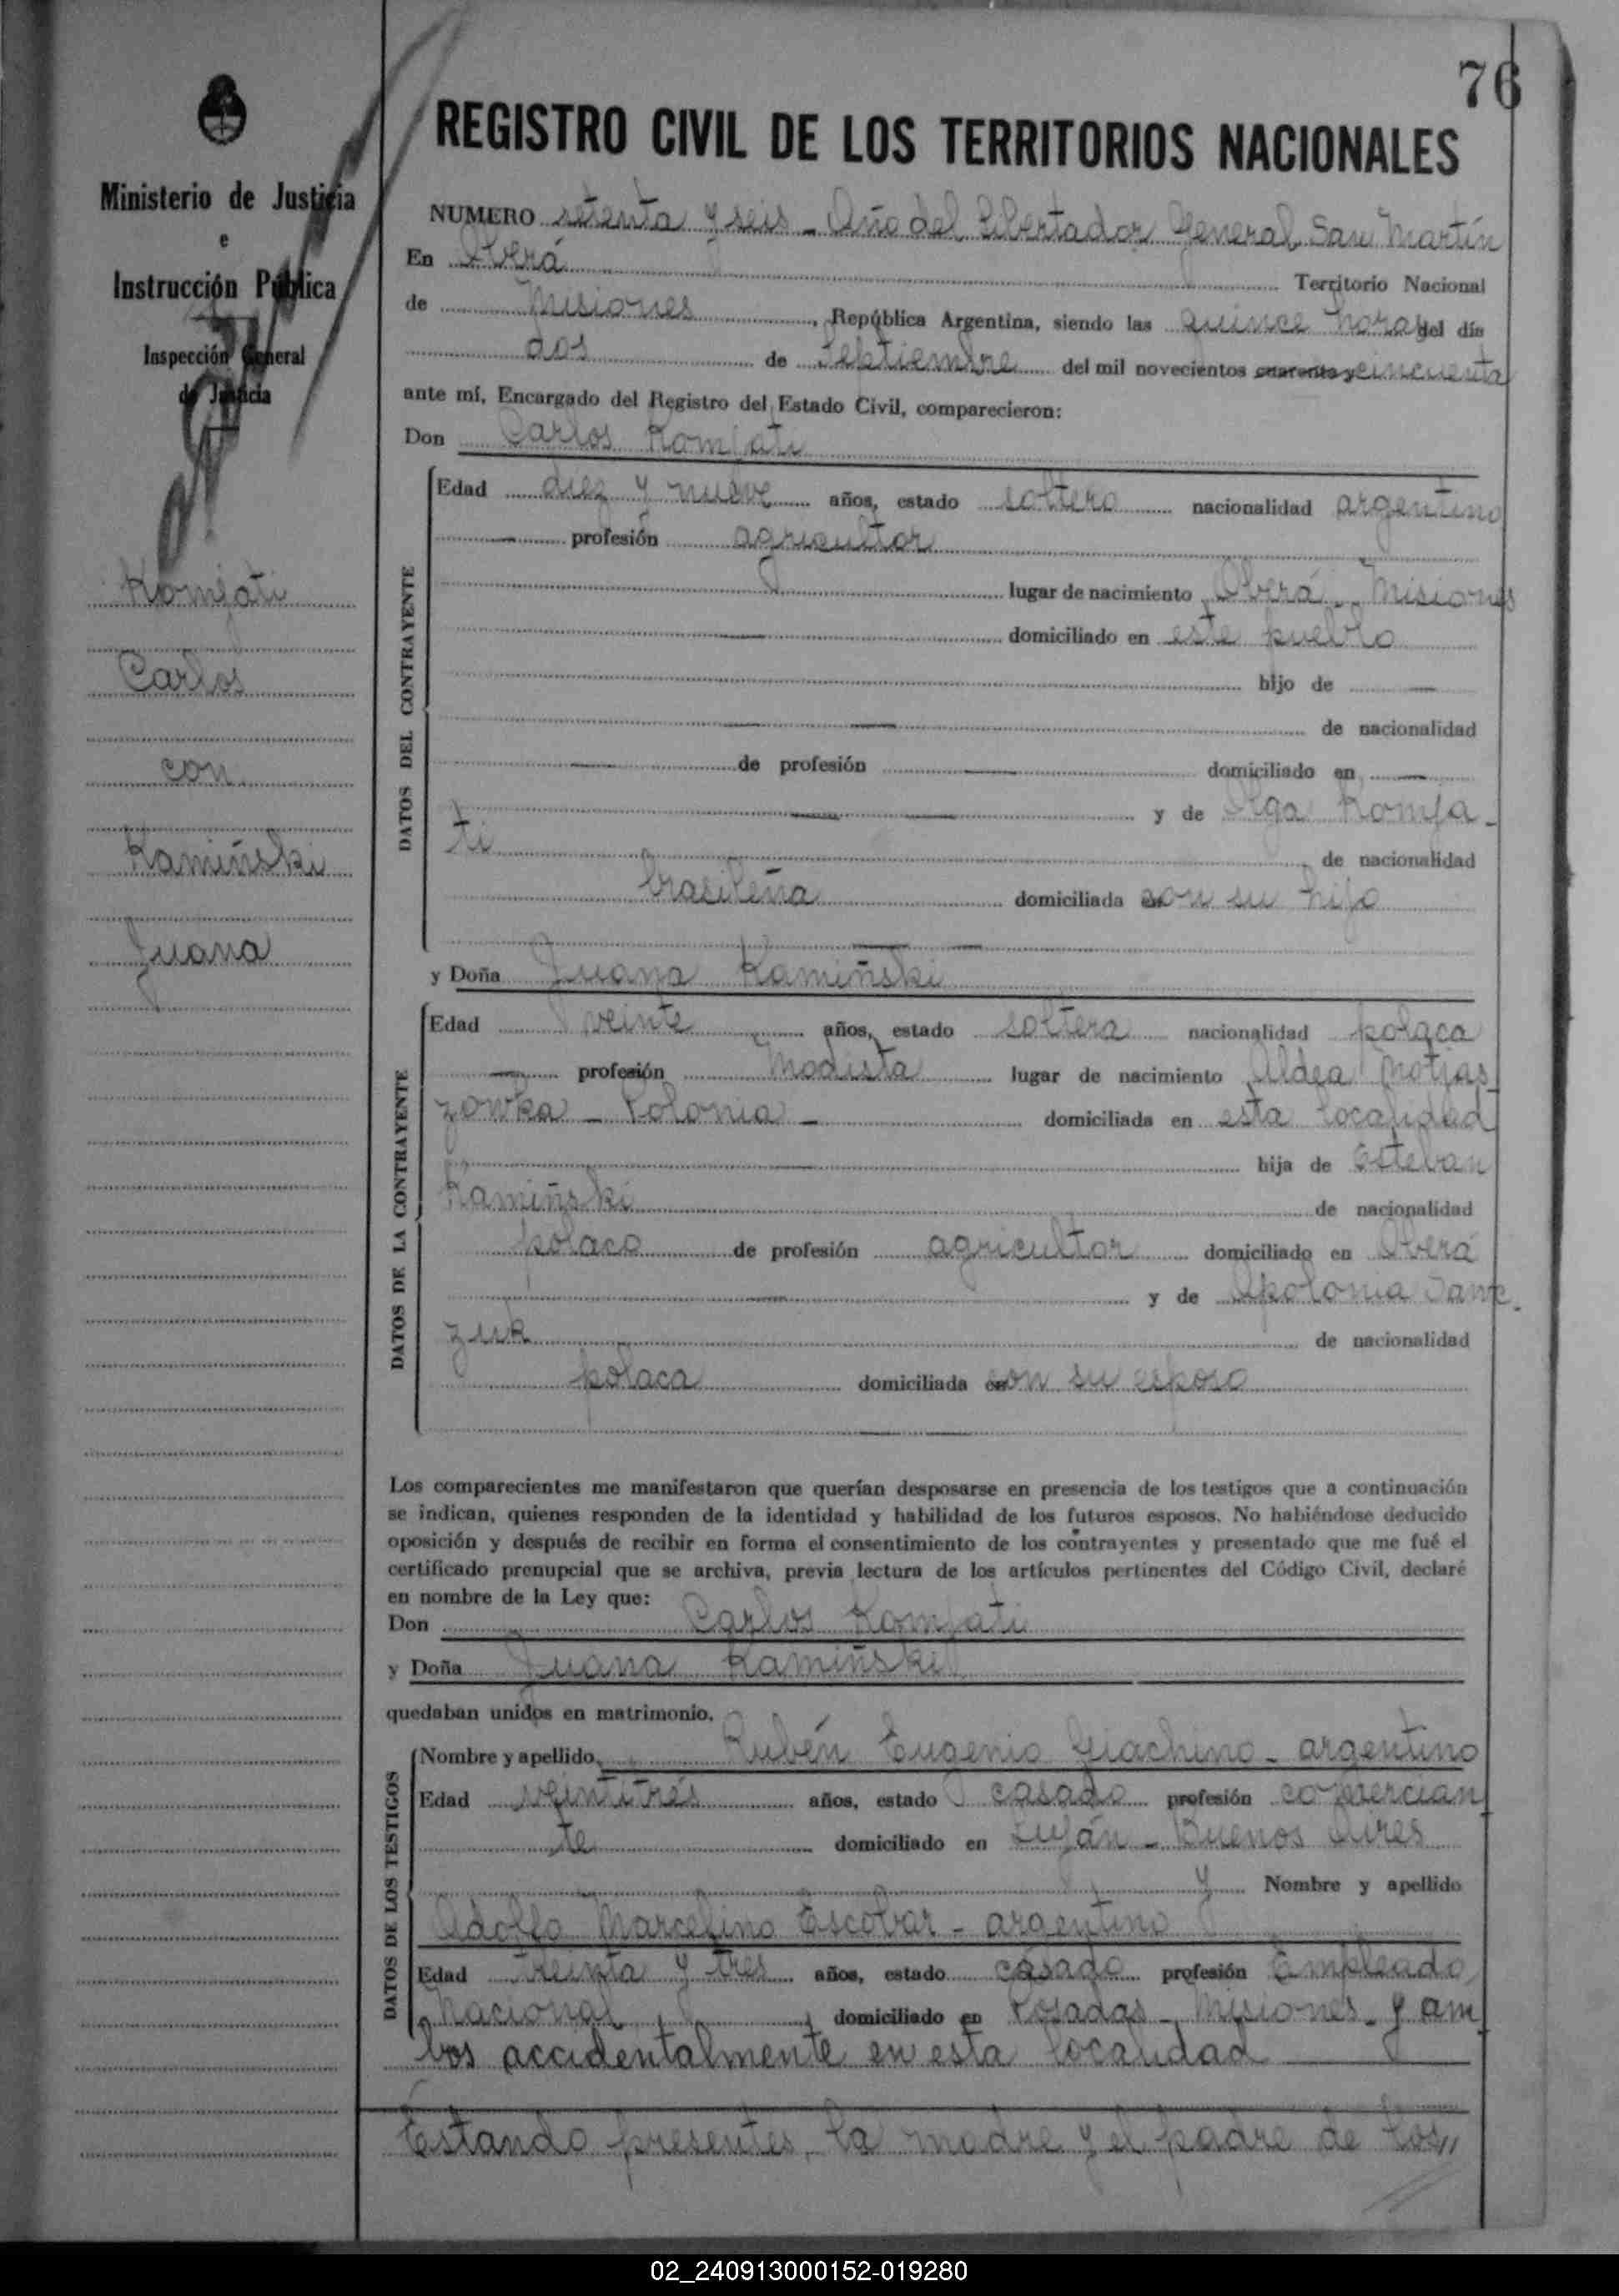 76
REGISTRO CIVIL DE LOS TERRITORIOS NACIONALES
Ministerio de Justicia
e
Instrucción Pública
Inspección General
de Justicia
Komjati
Carlos
con
Kamiñski
Juana
NUMERO setenta y seis - Año del Libertador General San Martín
En Oberá Territorio Nacional
de Misiones, República Argentina, siendo las quince horas del día
dos de Septiembre del mil novecientos cuarenta y cincuenta
ante mí, Encargado del Registro del Estado Civil, comparecieron:
Don Carlos Komjati
DATOS DEL CONTRAYENTE
Edad diez y nueve años, estado soltero nacionalidad argentino
profesión agricultor
lugar de nacimiento Oberá - Misiones
domiciliado en este pueblo
hijo de
de nacionalidad
de profesión domiciliado en
y de Olga Komja-
ti de nacionalidad
brasileña domiciliada con su hijo
y Doña Juana Kamiñski
DATOS DE LA CONTRAYENTE
Edad veinte años, estado soltera nacionalidad polaca
profesión Modista lugar de nacimiento Aldea Motjas
zowka - Polonia - domiciliada en esta localidad
hija de Esteban
Kamiñski de nacionalidad
polaco de profesión agricultor domiciliado en Oberá
y de Apolonia Sawc-
zuk de nacionalidad
polaca domiciliada con su esposo
Los comparecientes me manifestaron que querían desposarse en presencia de los testigos que a continuación
se indican, quienes responden de la identidad y habilidad de los futuros esposos. No habiéndose deducido
oposición y después de recibir en forma el consentimiento de los contrayentes y presentado que me fué el
certificado prenupcial que se archiva, previa lectura de los artículos pertinentes del Código Civil, declaré
en nombre de la Ley que:
Don Carlos Komjati
y Doña Juana Kamiñski
quedaban unidos en matrimonio.
DATOS DE LOS TESTIGOS
Nombre y apellido Rubén Eugenio Giachino - argentino
Edad veintitrés años, estado casado profesión comercian
te domiciliado en Luján - Buenos Aires
y Nombre y apellido
Adolfo Marcelino Escobar - argentino
Edad treinta y tres años, estado casado profesión Empleado
Nacional domiciliado en Posadas - Misiones - y am
bos accidentalmente en esta localidad
Estando presentes, la madre y el padre de los,,
02_240913000152-019280